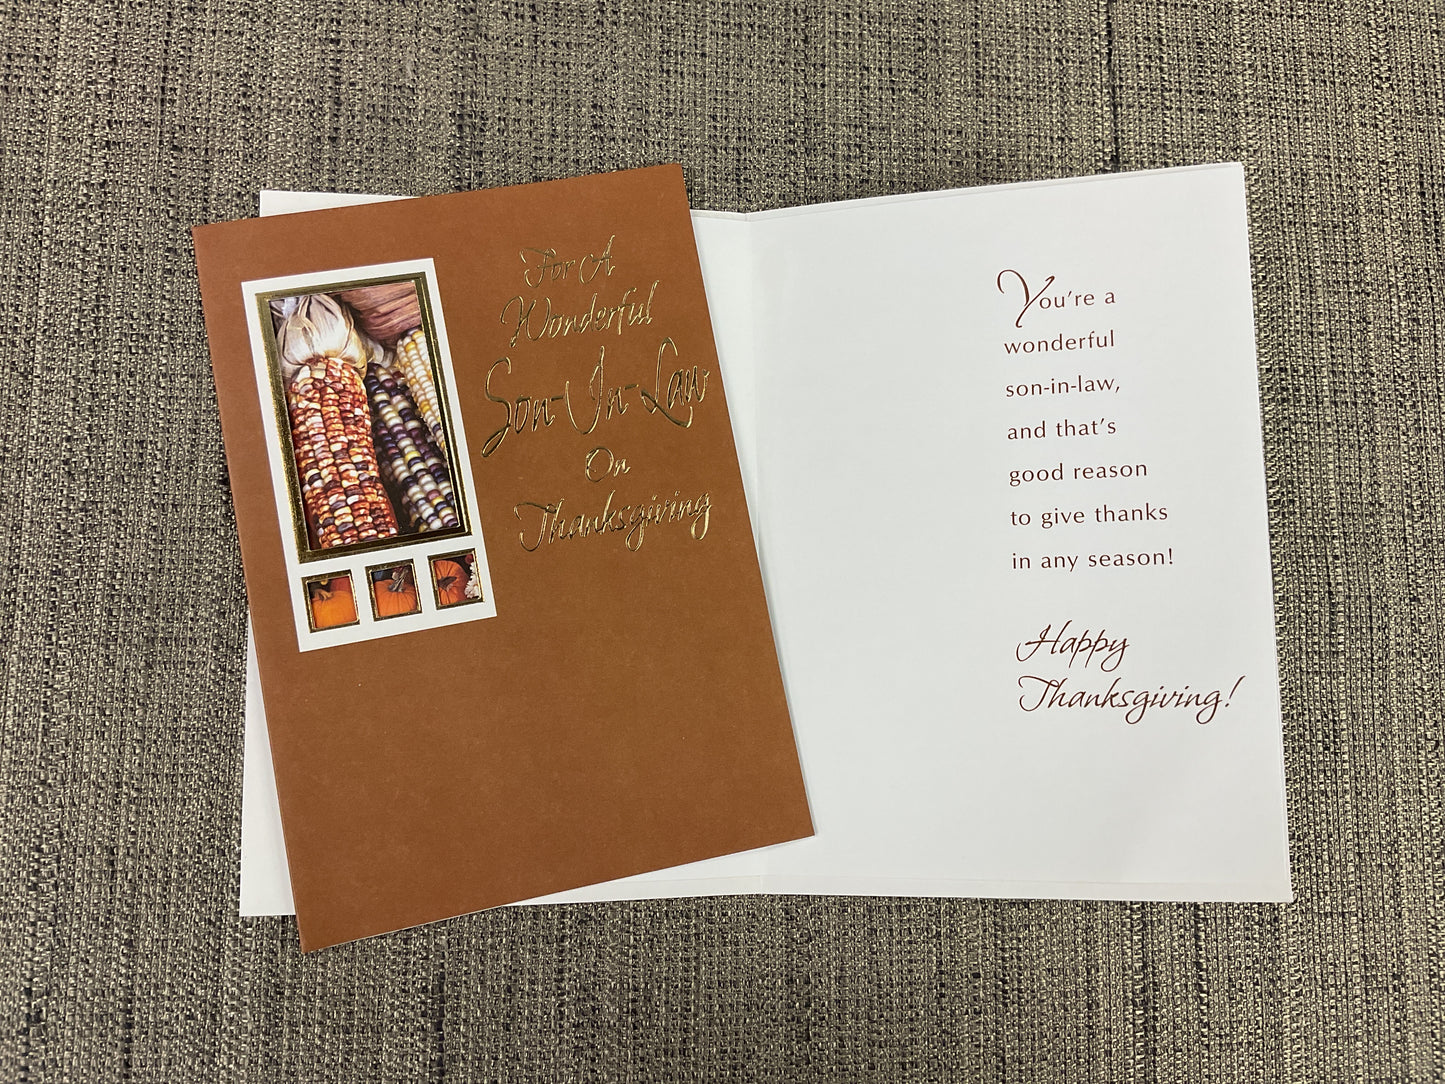 For A
Wonderful
Son-In-Law
On
Thanksgiving
You're a
wonderful
son-in-law,
and that's
good reason
to give thanks
in any season!
Happy
Thanksgiving!